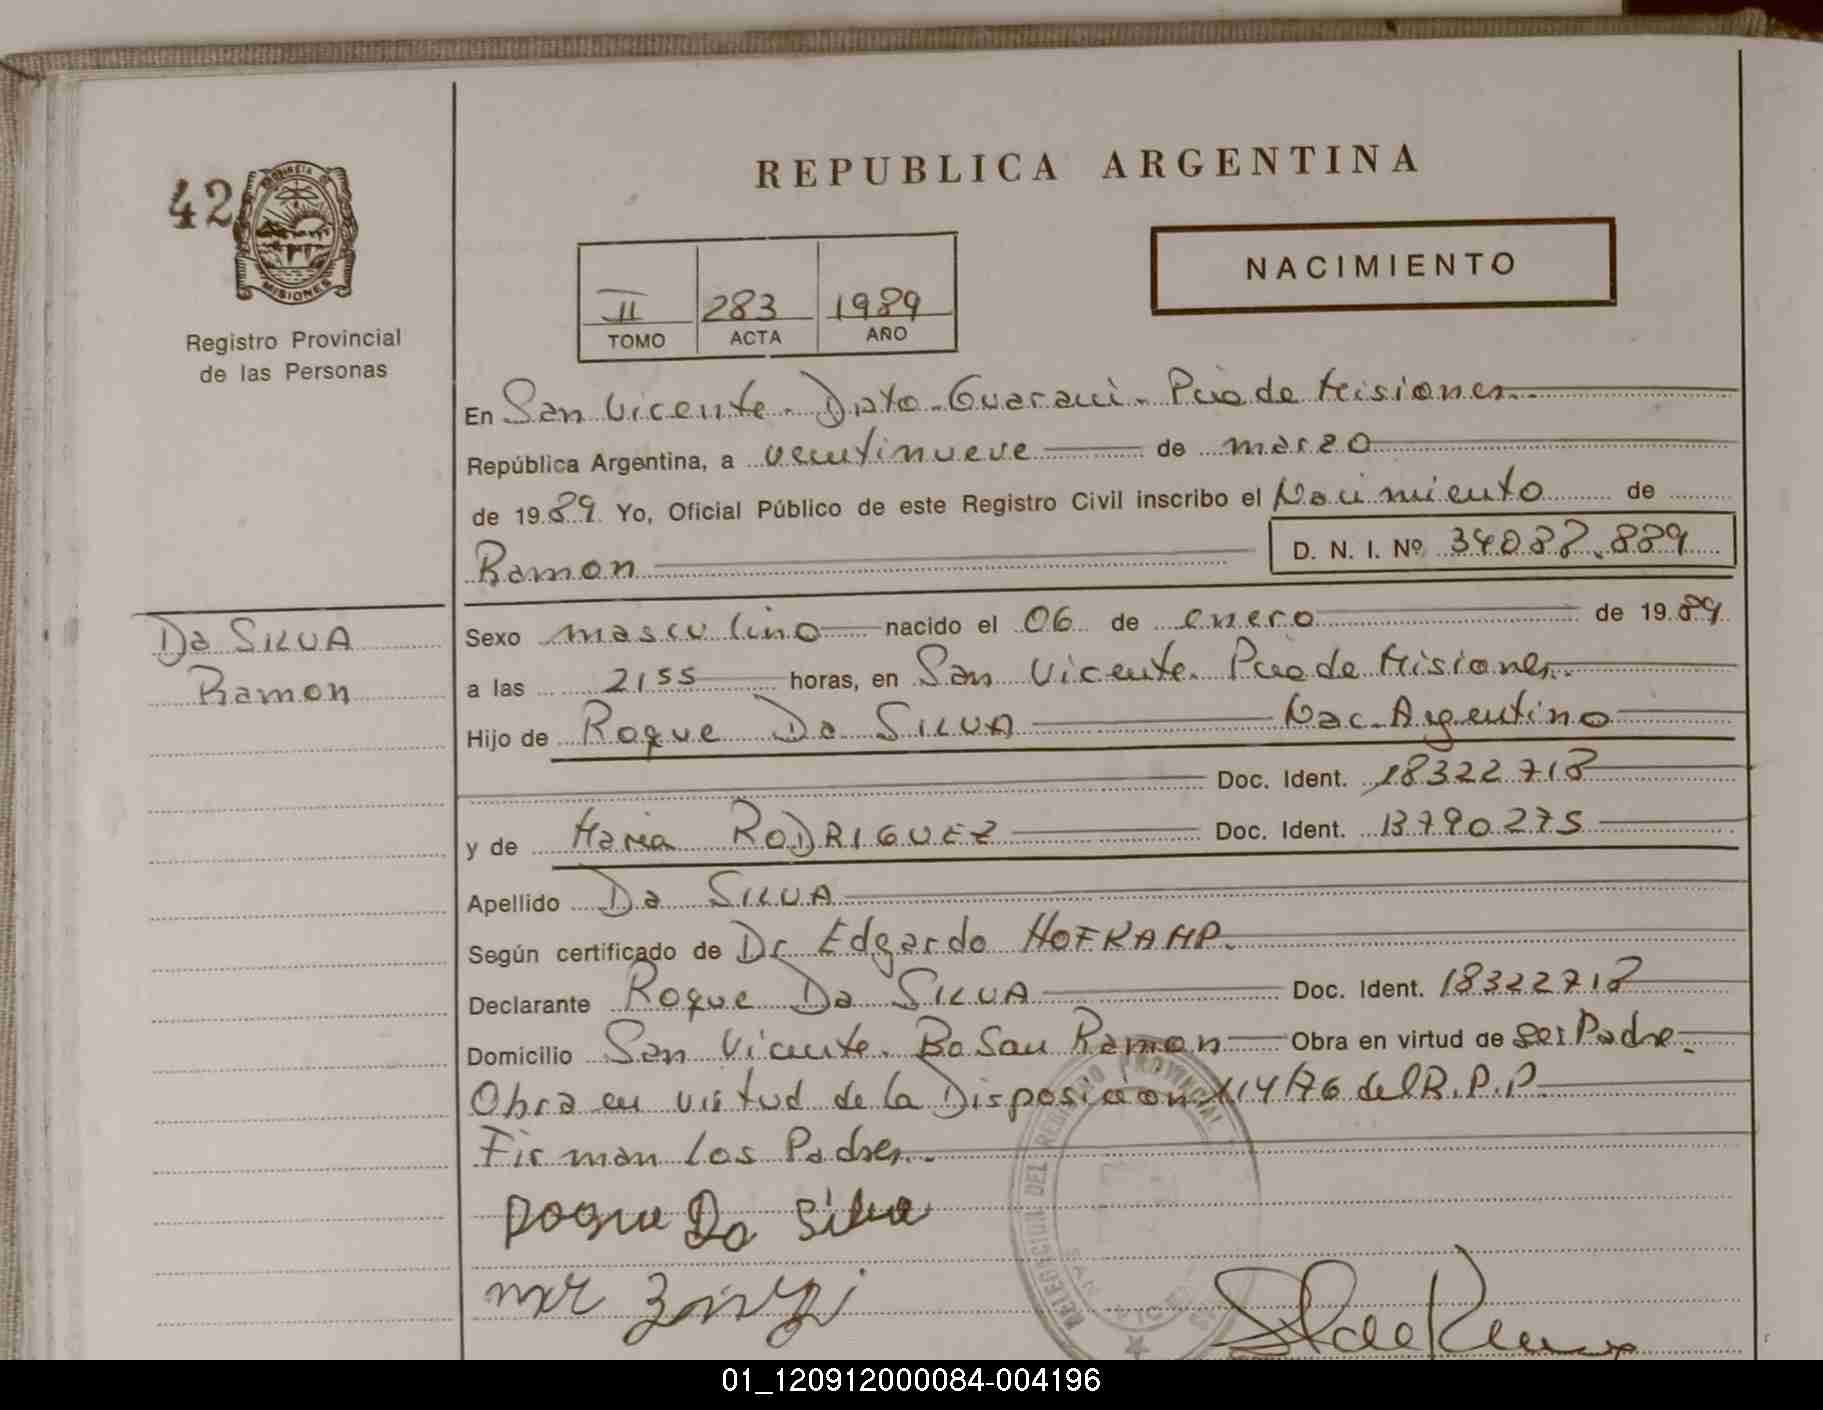 42
PROVINCIA DE
MISIONES
Registro Provincial
de las Personas
REPUBLICA ARGENTINA
NACIMIENTO
II 283 1989
TOMO ACTA AÑO
En San Vicente. Dpto. Guarani. Pcia de Misiones.
República Argentina, a veintinueve de marzo
de 1989 Yo, Oficial Público de este Registro Civil inscribo el Nacimiento de
Ramon D. N. I. Nº 34087.889
Da SILVA
Ramon
Sexo masculino nacido el 06 de enero de 1989
a las 2155 horas, en San Vicente. Pcia de Misiones.
Hijo de Roque Da SILVA Nac. Argentino
Doc. Ident. 18322718
y de Maria RODRIGUEZ Doc. Ident. 13790275
Apellido Da SILVA
Según certificado de Dr Edgardo HOFKAMP.
Declarante Roque Da SILVA Doc. Ident. 18322718
Domicilio San Vicente. Bo San Ramon Obra en virtud de ser Padre.
Obra en virtud de la Disposicion 114/76 del R.P.P
Firman los Padres.
Roque Da Silva
DELEGACION DEL REGISTRO PROVINCIAL
SAN VICENTE
01_120912000084-004196